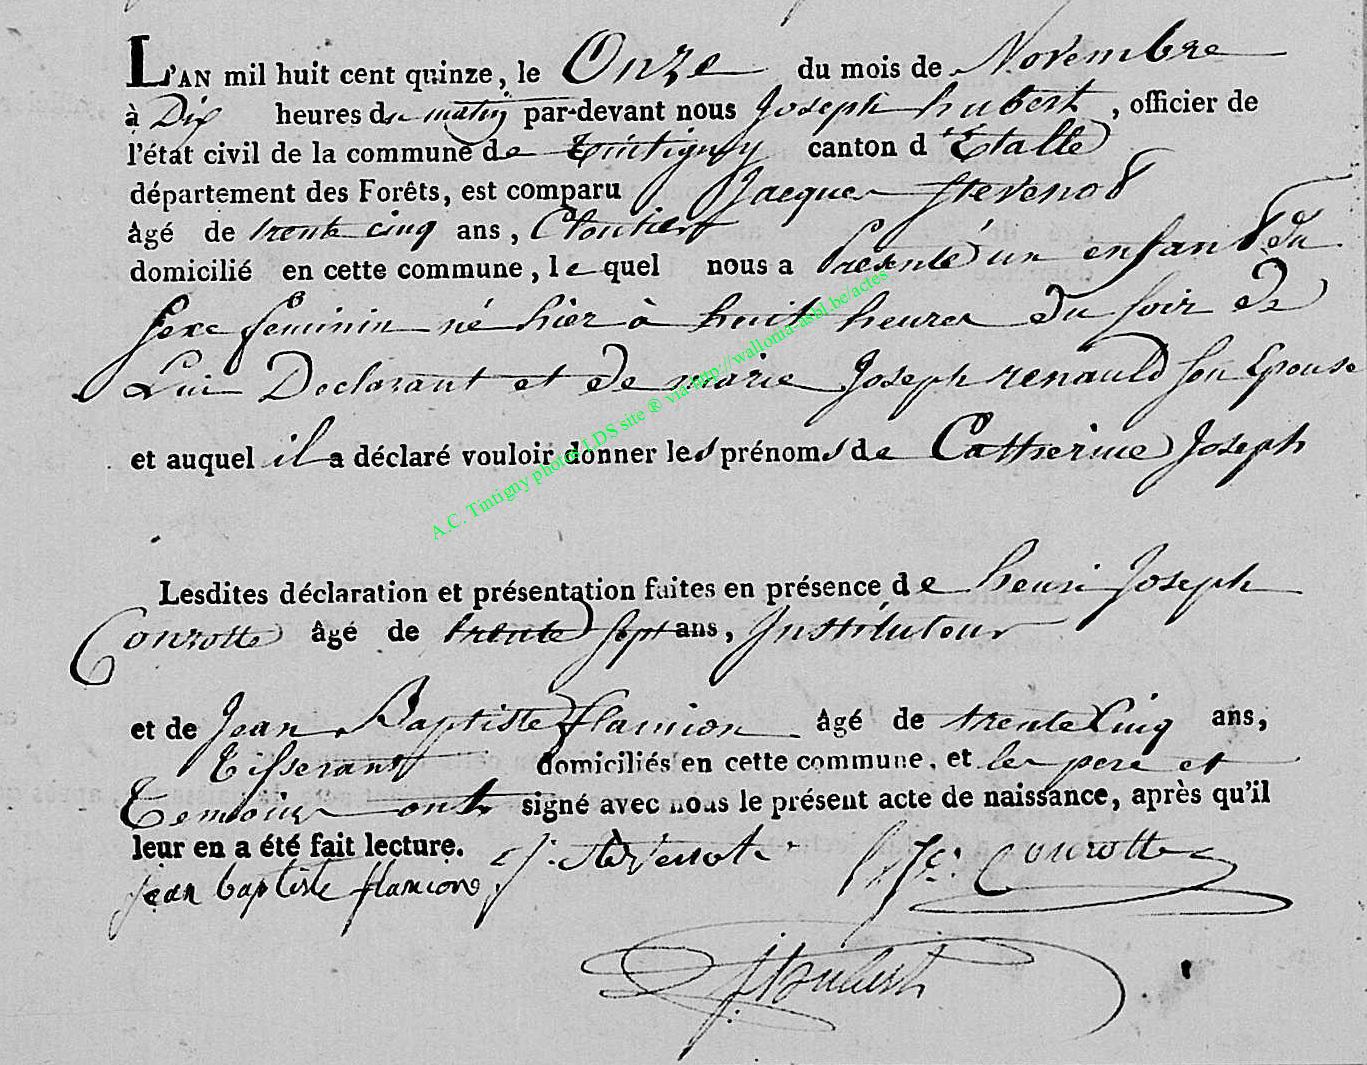 L'AN mil huit cent quinze, le Onze du mois de Novembre
à Dix heures du matin par-devant nous Joseph hubert, officier de
l'état civil de la commune de tintigny canton d'Etalle
département des Forêts, est comparu Jacques Stevenot
âgé de trente cinq ans, Cloutier
domicilié en cette commune, le quel nous a présenté un enfant du
sexe feminin né hier à huit heures du soir de
Lui Declarant et de marie Joseph renauld son Epouse
et auquel il a déclaré vouloir donner les prénoms de Catherine Joseph
A.C. Tintigny photos LDS site ® via http://wallonia-asbl.be/actes
Lesdites déclaration et présentation faites en présence de henri Joseph
Conrotte âgé de trente sept ans, Instituteur
et de Jean Baptiste flamion âgé de trente Cinq ans,
Tisserant domiciliés en cette commune, et les pere et
Temoins ont signé avec nous le présent acte de naissance, après qu'il
leur en a été fait lecture. J. Stevenot Conrotte
jean baptiste flamion
Hubert